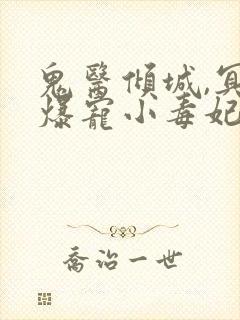 鬼醫傾城,冥
爆寵小毒妃
喬治一世